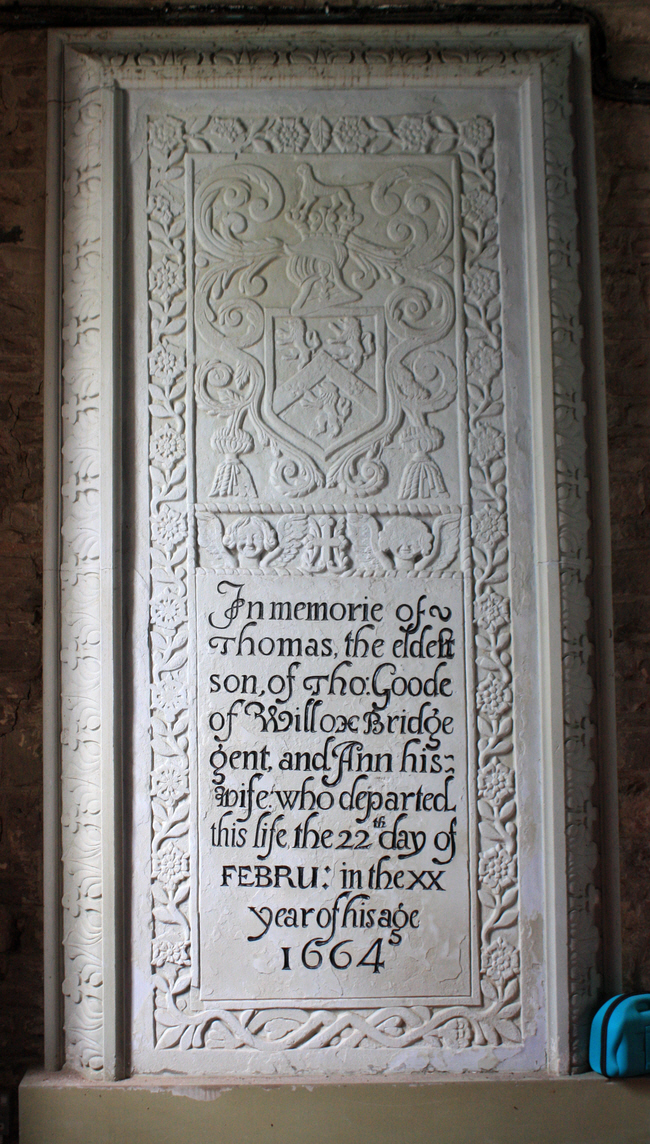 In memorie of
Thomas, the eldest
son, of Tho: Goode
of Willox Bridge
gent, and Ann his:
wife: who departed
this life the 22th day of
FEBRU: in the XX
year of his age
1664